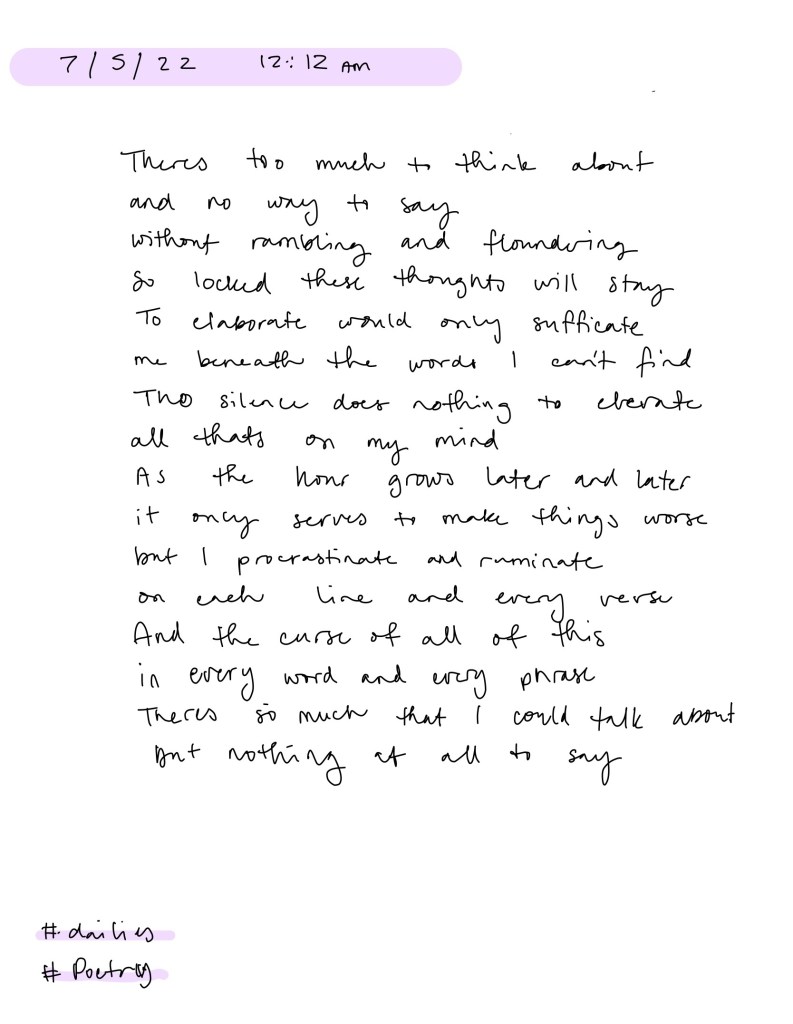 7/5/22 12:12 AM
Theres too much to think about
and no way to say
without rambling and floundering
So locked these thoughts will stay
To elaborate would only sufficate
me beneath the words I can't find
Tho silence does nothing to
all thats on my mind
As the hour grows later and later
it only serves to make things worse
but I procrastinate and ruminate
on each line and every verse
And the curse of all of this
in every word and every phrase
Theres so much that I could talk about
but nothing at all to say
# dailies
# Poetry